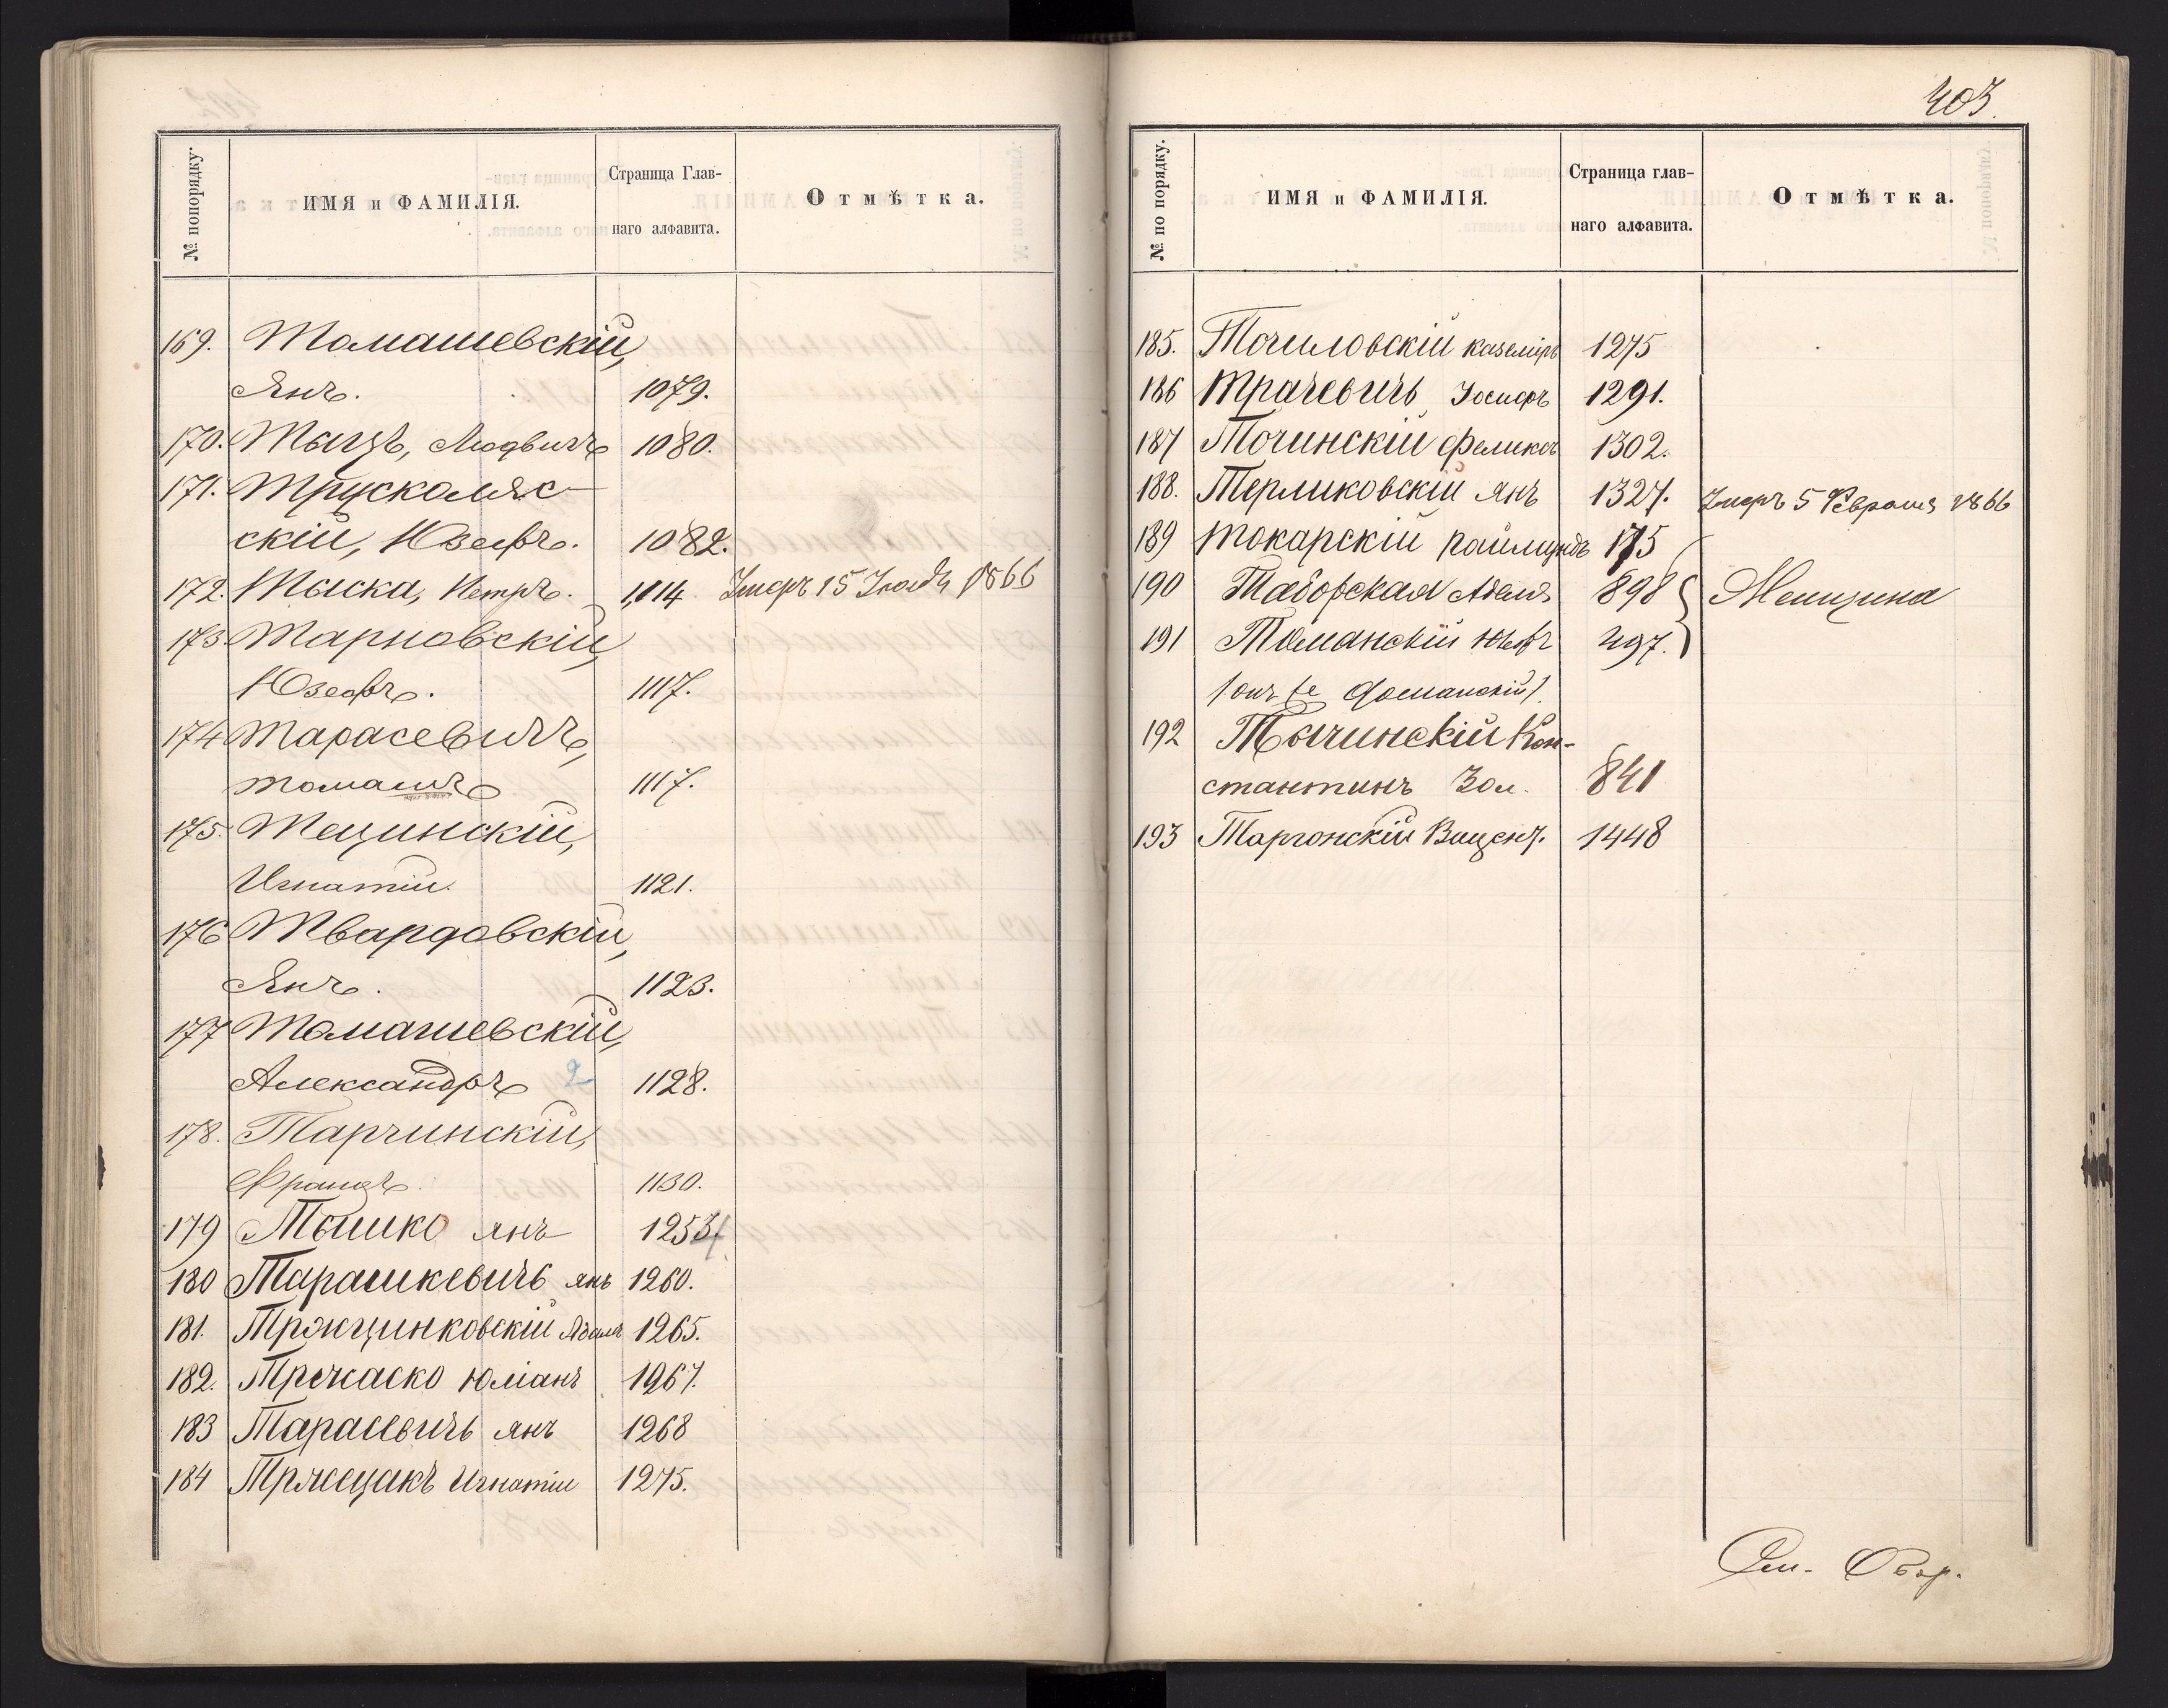 № попорядку.
ИМЯ и ФАМИЛІЯ.
Страница Глав-
наго алфавита.
Отмѣтка.
169. Томашевскій,
Янъ. 1079.
170. Тыцъ, Людвигъ 1080.
171. Трускаляс-
скій, Юзефъ. 1082.
172. Тыска, Петръ. 1,014 Умеръ 15 1866
173. Тарновскій,
Юзефъ. 1117.
174 Тарасевичъ,
Томашъ 1117.
175. Тецинскій,
Игнатій. 1121.
176 Твардовскій,
Янъ. 1123.
177 Томашевскій,
Александръ 2 1128.
178. Тарчинскій,
Францъ. 1130.
179 Тышко янъ
180 Тарашкевичъ янъ 1260.
181. Тржцинковскій Адамъ 1265.
182. Тржаско Юліанъ 1267.
183 Тарасевичъ янъ 1268
184 Игнатій 1275.
403.
№ по порядку.
ИМЯ и ФАМИЛІЯ.
Страница глав-
наго алфавита.
Отмѣтка.
185. Точиловскій каземіръ 1275
186 Трачевичъ Іосифъ 1291.
187 Точинскій Феликсъ 1302.
188. Терликовскій янъ 1327. Умеръ 5 Февраля 1866
189 Токарскій Раймундъ 175
190 Таборская Адель 898 Женщина
191 Томанскій 497.
Доманскій)
192 Тычинскій Кон-
стантинъ 841
193 Таргонскій Винцент. 1448